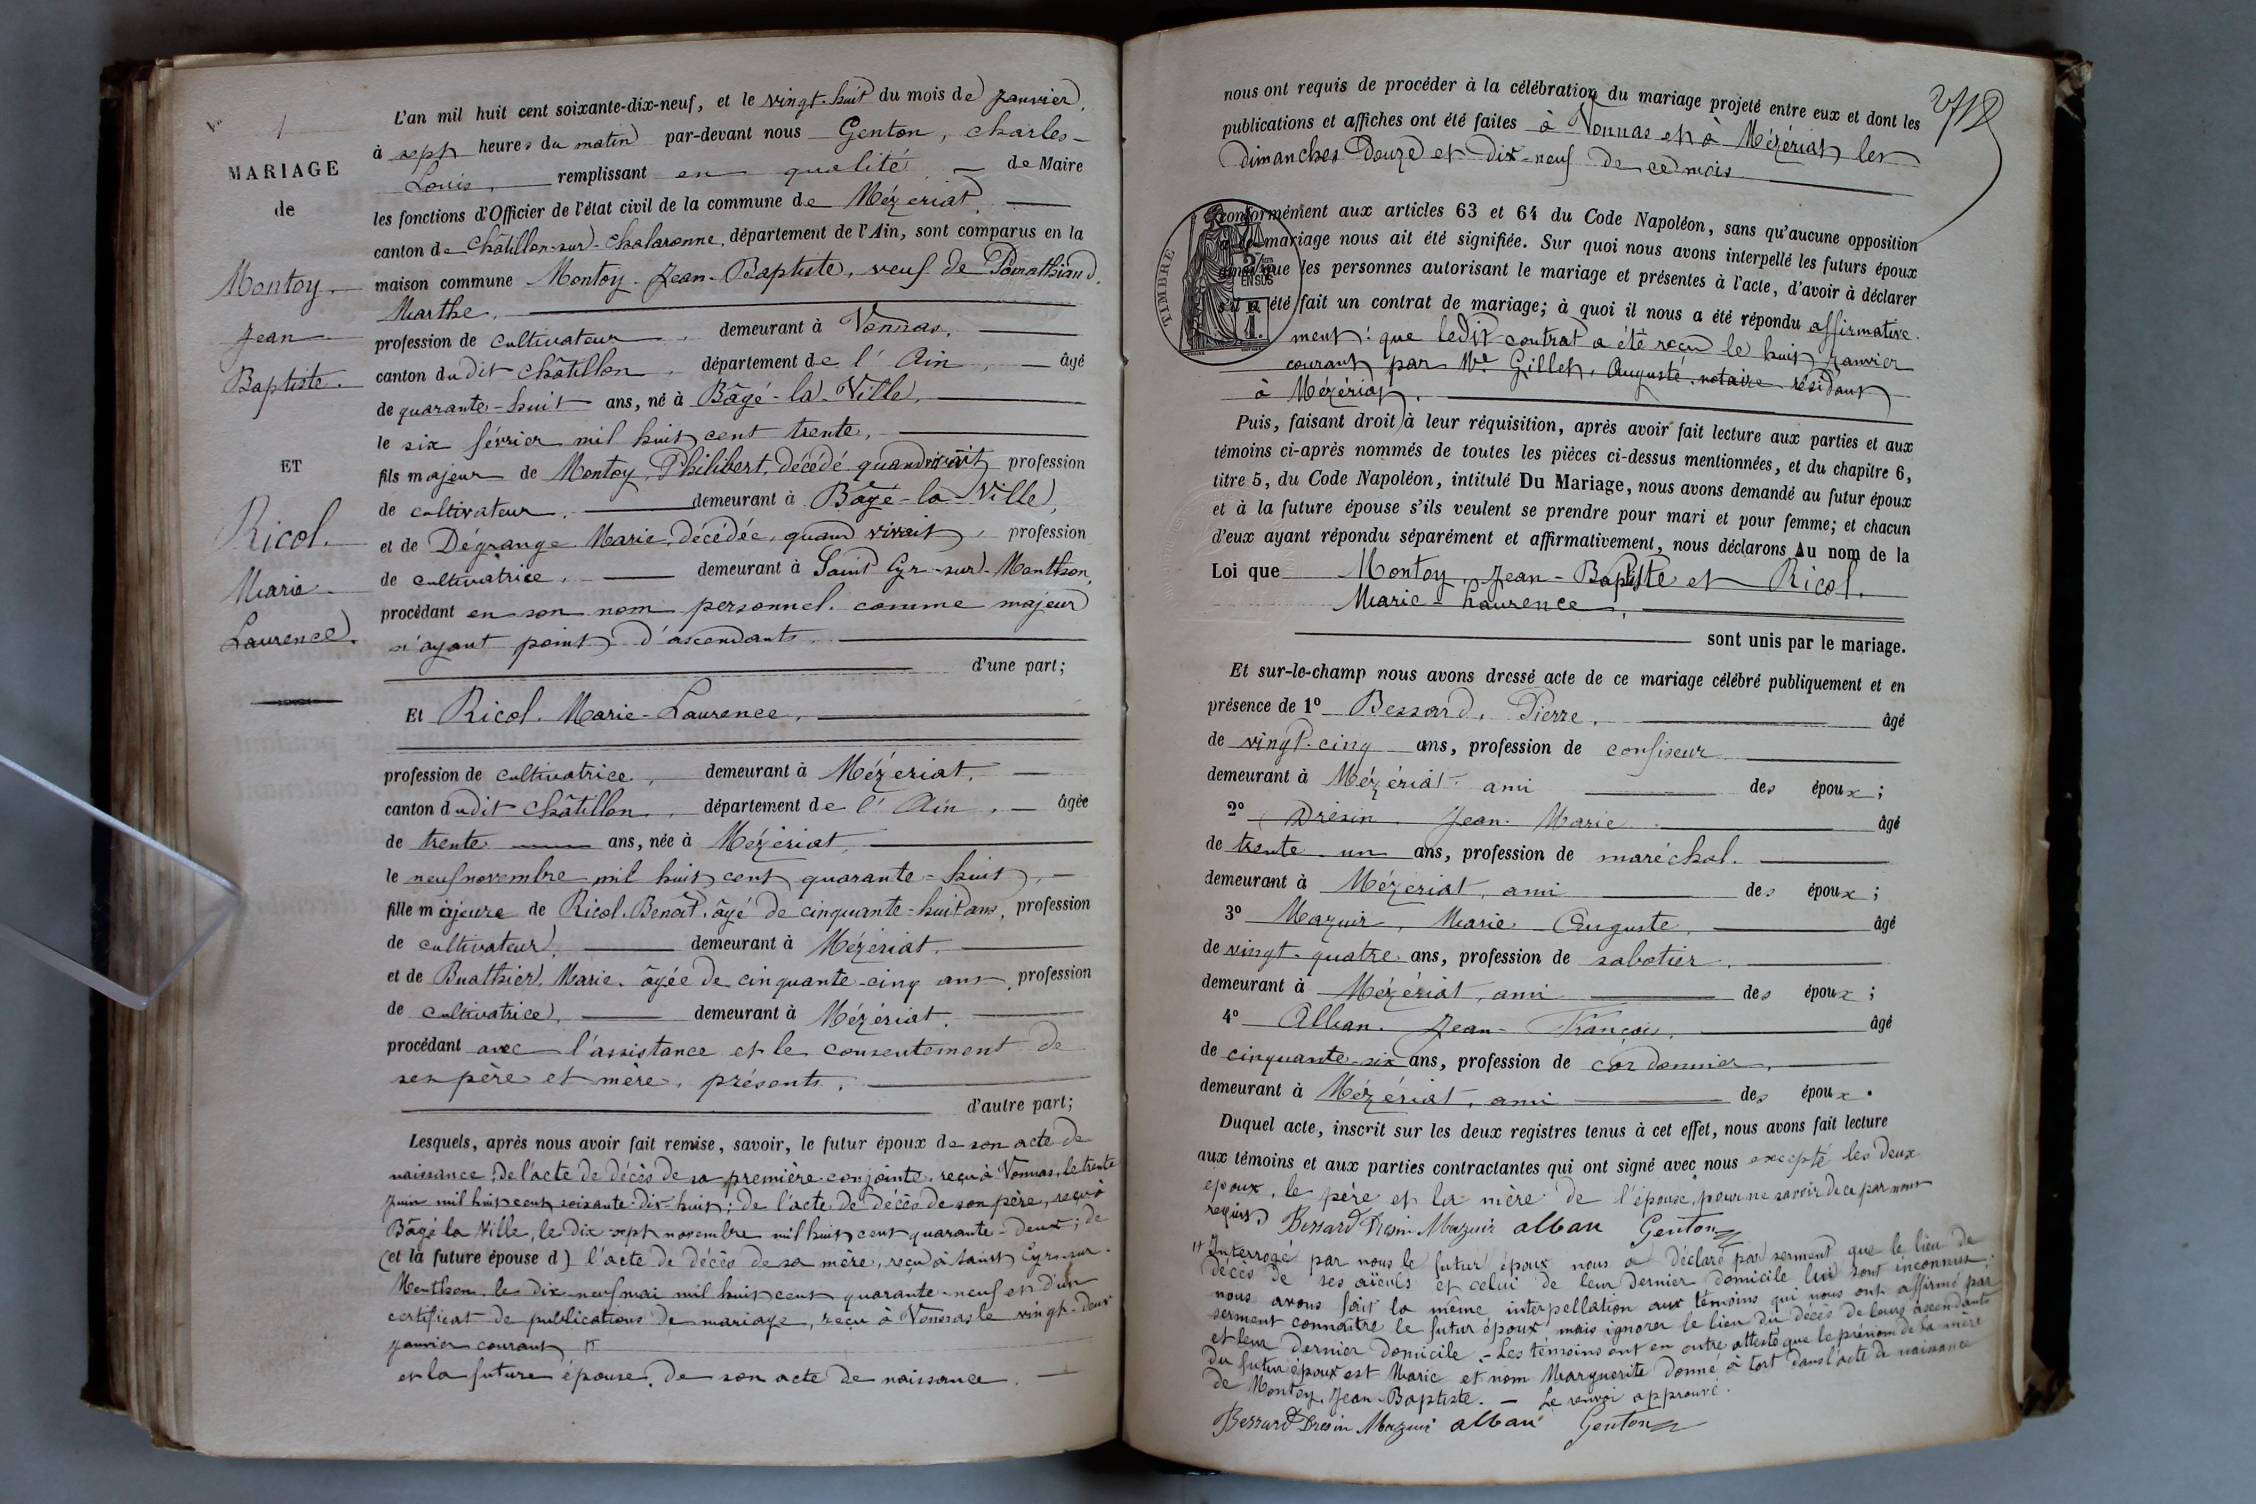 Nº 1
MARIAGE
de
Montoy
Jean
Baptiste.
ET
Ricol.
Marie
Laurence.
L'an mil huit cent soixante-dix-neuf, et le vingt-huit du mois de Janvier,
à sept heures du matin par-devant nous Genton, Charles-
Louis, remplissant en qualité de Maire
les fonctions d'Officier de l'état civil de la commune de Mézériat,
canton de Châtillon-sur-Chalaronne, département de l'Ain, sont comparus en la
maison commune Montoy Jean-Baptiste, veuf de Pomathiand,
Marthe,
profession de cultivateur, demeurant à Vonnas,
canton dudit Châtillon, département de l'Ain, âgé
de quarante-huit ans, né à Bâgé-la-Ville,
le six février mil huit cent trente,
fils majeur de Montoy, Philibert, décédé quand vivait profession
de cultivateur, demeurant à Bâgé-la-Ville,
et de Dégrange Marie, décédée, quand vivait, profession
de cultivatrice, demeurant à Saint Cyr-sur-Menthon,
procédant en son nom personnel comme majeur
n'ayant point d'ascendants,
d'une part;
Et Ricol, Marie-Laurence,
profession de cultivatrice, demeurant à Mézériat,
canton dudit Châtillon, département de l'Ain, âgée
de trente ans, née à Mézériat,
le neuf novembre mil huit cent quarante-huit,
fille majeure de Ricol, Benoît, âgé de cinquante-huit ans, profession
de cultivateur, demeurant à Mézériat,
et de Buathier, Marie, âgée de cinquante-cinq ans, profession
de cultivatrice, demeurant à Mézériat,
procédant avec l'assistance et le consentement de
ses père et mère, présents,
d'autre part;
Lesquels, après nous avoir fait remise, savoir, le futur époux de son acte de
naissance; de l'acte de décès de sa première conjointe, reçu à Vonnas, le trente
juin mil huit cent soixante-dix-huit; de l'acte de décès de son père, reçu à
Bâgé la Ville, le dix-sept novembre mil huit cent quarante-deux; de
(et la future épouse d) l'acte de décès de sa mère, reçu à Saint Cyr-sur-
Menthon, le dix-neuf mai mil huit cent quarante-neuf et d'un
certificat de publications de mariage, reçu à Vonnas le vingt-deux
janvier courant
et la future épouse, de son acte de naissance.
nous ont requis de procéder à la célébration du mariage projeté entre eux et dont les
publications et affiches ont été faites à Vonnas et à Mézériat, les
dimanches Douze et Dix-neuf de ce mois
conformément aux articles 63 et 64 du Code Napoléon, sans qu'aucune opposition
à ce mariage nous ait été signifiée. Sur quoi nous avons interpellé les futurs époux
ainsi que les personnes autorisant le mariage et présentes à l'acte, d'avoir à déclarer
s'il a été fait un contrat de mariage; à quoi il nous a été répondu affirmative-
ment: que ledit contrat a été reçu le huit janvier
courant par Me Gillet, Auguste, notaire résidant
à Mézériat.
TIMBRE
2/10 EN SUS
Puis, faisant droit à leur réquisition, après avoir fait lecture aux parties et aux
témoins ci-après nommés de toutes les pièces ci-dessus mentionnées, et du chapitre 6,
titre 5, du Code Napoléon, intitulé Du Mariage, nous avons demandé au futur époux
et à la future épouse s'ils veulent se prendre pour mari et pour femme; et chacun
d'eux ayant répondu séparément et affirmativement, nous déclarons Au nom de la
Loi que Montoy, Jean-Baptiste et Ricol,
Marie-Laurence,
sont unis par le mariage.
Et sur-le-champ nous avons dressé acte de ce mariage célébré publiquement et en
présence de 1º Bessard, Pierre, âgé
de vingt-cinq ans, profession de confiseur
demeurant à Mézériat, ami des époux;
2º Drésin, Jean-Marie, âgé
de trente-un ans, profession de maréchal,
demeurant à Mézériat, ami des époux;
3º Mazuir, Marie-Auguste, âgé
de vingt-quatre ans, profession de sabotier,
demeurant à Mézériat, ami des époux;
4º Alban, Jean-François, âgé
de cinquante-six ans, profession de cordonnier,
demeurant à Mézériat, ami des époux.
Duquel acte, inscrit sur les deux registres tenus à cet effet, nous avons fait lecture
aux témoins et aux parties contractantes qui ont signé avec nous excepté les deux
époux, le père et la mère de l'épouse, pour ne savoir de ce par nous
requis.) Bessard Drésin Mazuir alban Genton
Interrogé par nous le futur époux nous a déclaré par serment que le lieu de
décès de ses aïeuls et celui de leur dernier domicile lui sont inconnus;
nous avons fait la même interpellation aux témoins qui nous ont affirmé par
serment connaître le futur époux mais ignorer le lieu du décès de leurs ascendants
et leur dernier domicile. Les témoins ont en outre attesté que le prénom de la mère
du futur époux est Marie et nom Marguerite donné à tort dans l'acte de naissance
de Montoy, Jean-Baptiste. — Le renvoi approuvé.
Bessard Drésin Mazuir alban Genton